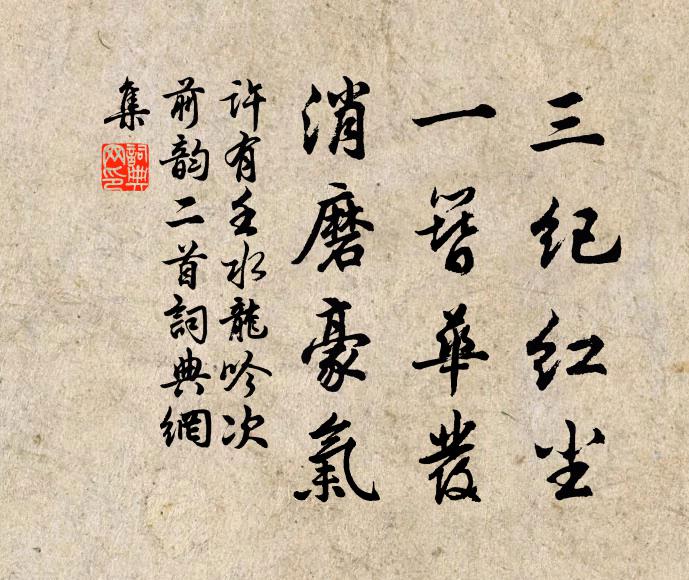 三纪红尘
一簪华发
消磨豪氣
许有壬水龍吟次
前韵二首詞典網
集
詞典
网印